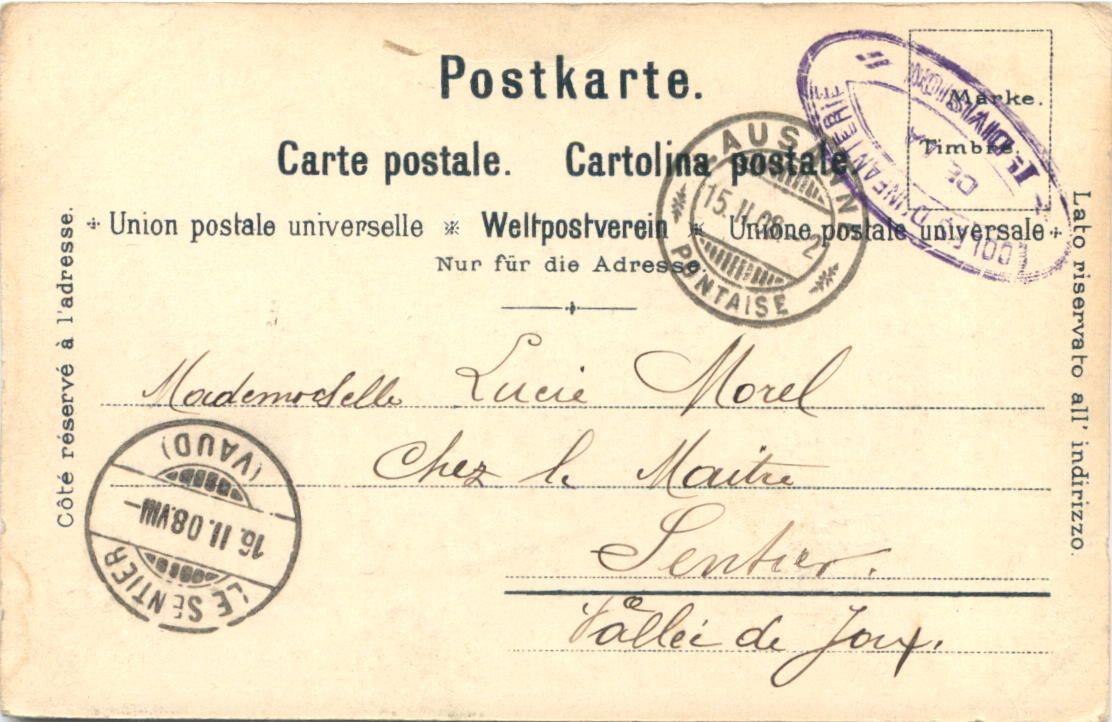 Postkarte.
Carte postale. Cartolina postale.
Union postale universelle Weltpostverein Unione postale universale
Nur für die Adresse.
Côté réservé à l'adresse.
Lato riservato all' indirizzo.
Marke.
Timbre.
D'INFANTERIE
DE LA
Ie DIVISION
LAUSANNE
15.II.08.-2
PONTAISE
Mademoiselle Lucie Morel
Chez le Maitre
Sentier.
Vallée de Joux.
(VAUD)
16.II.08.VIII-
LE SENTIER